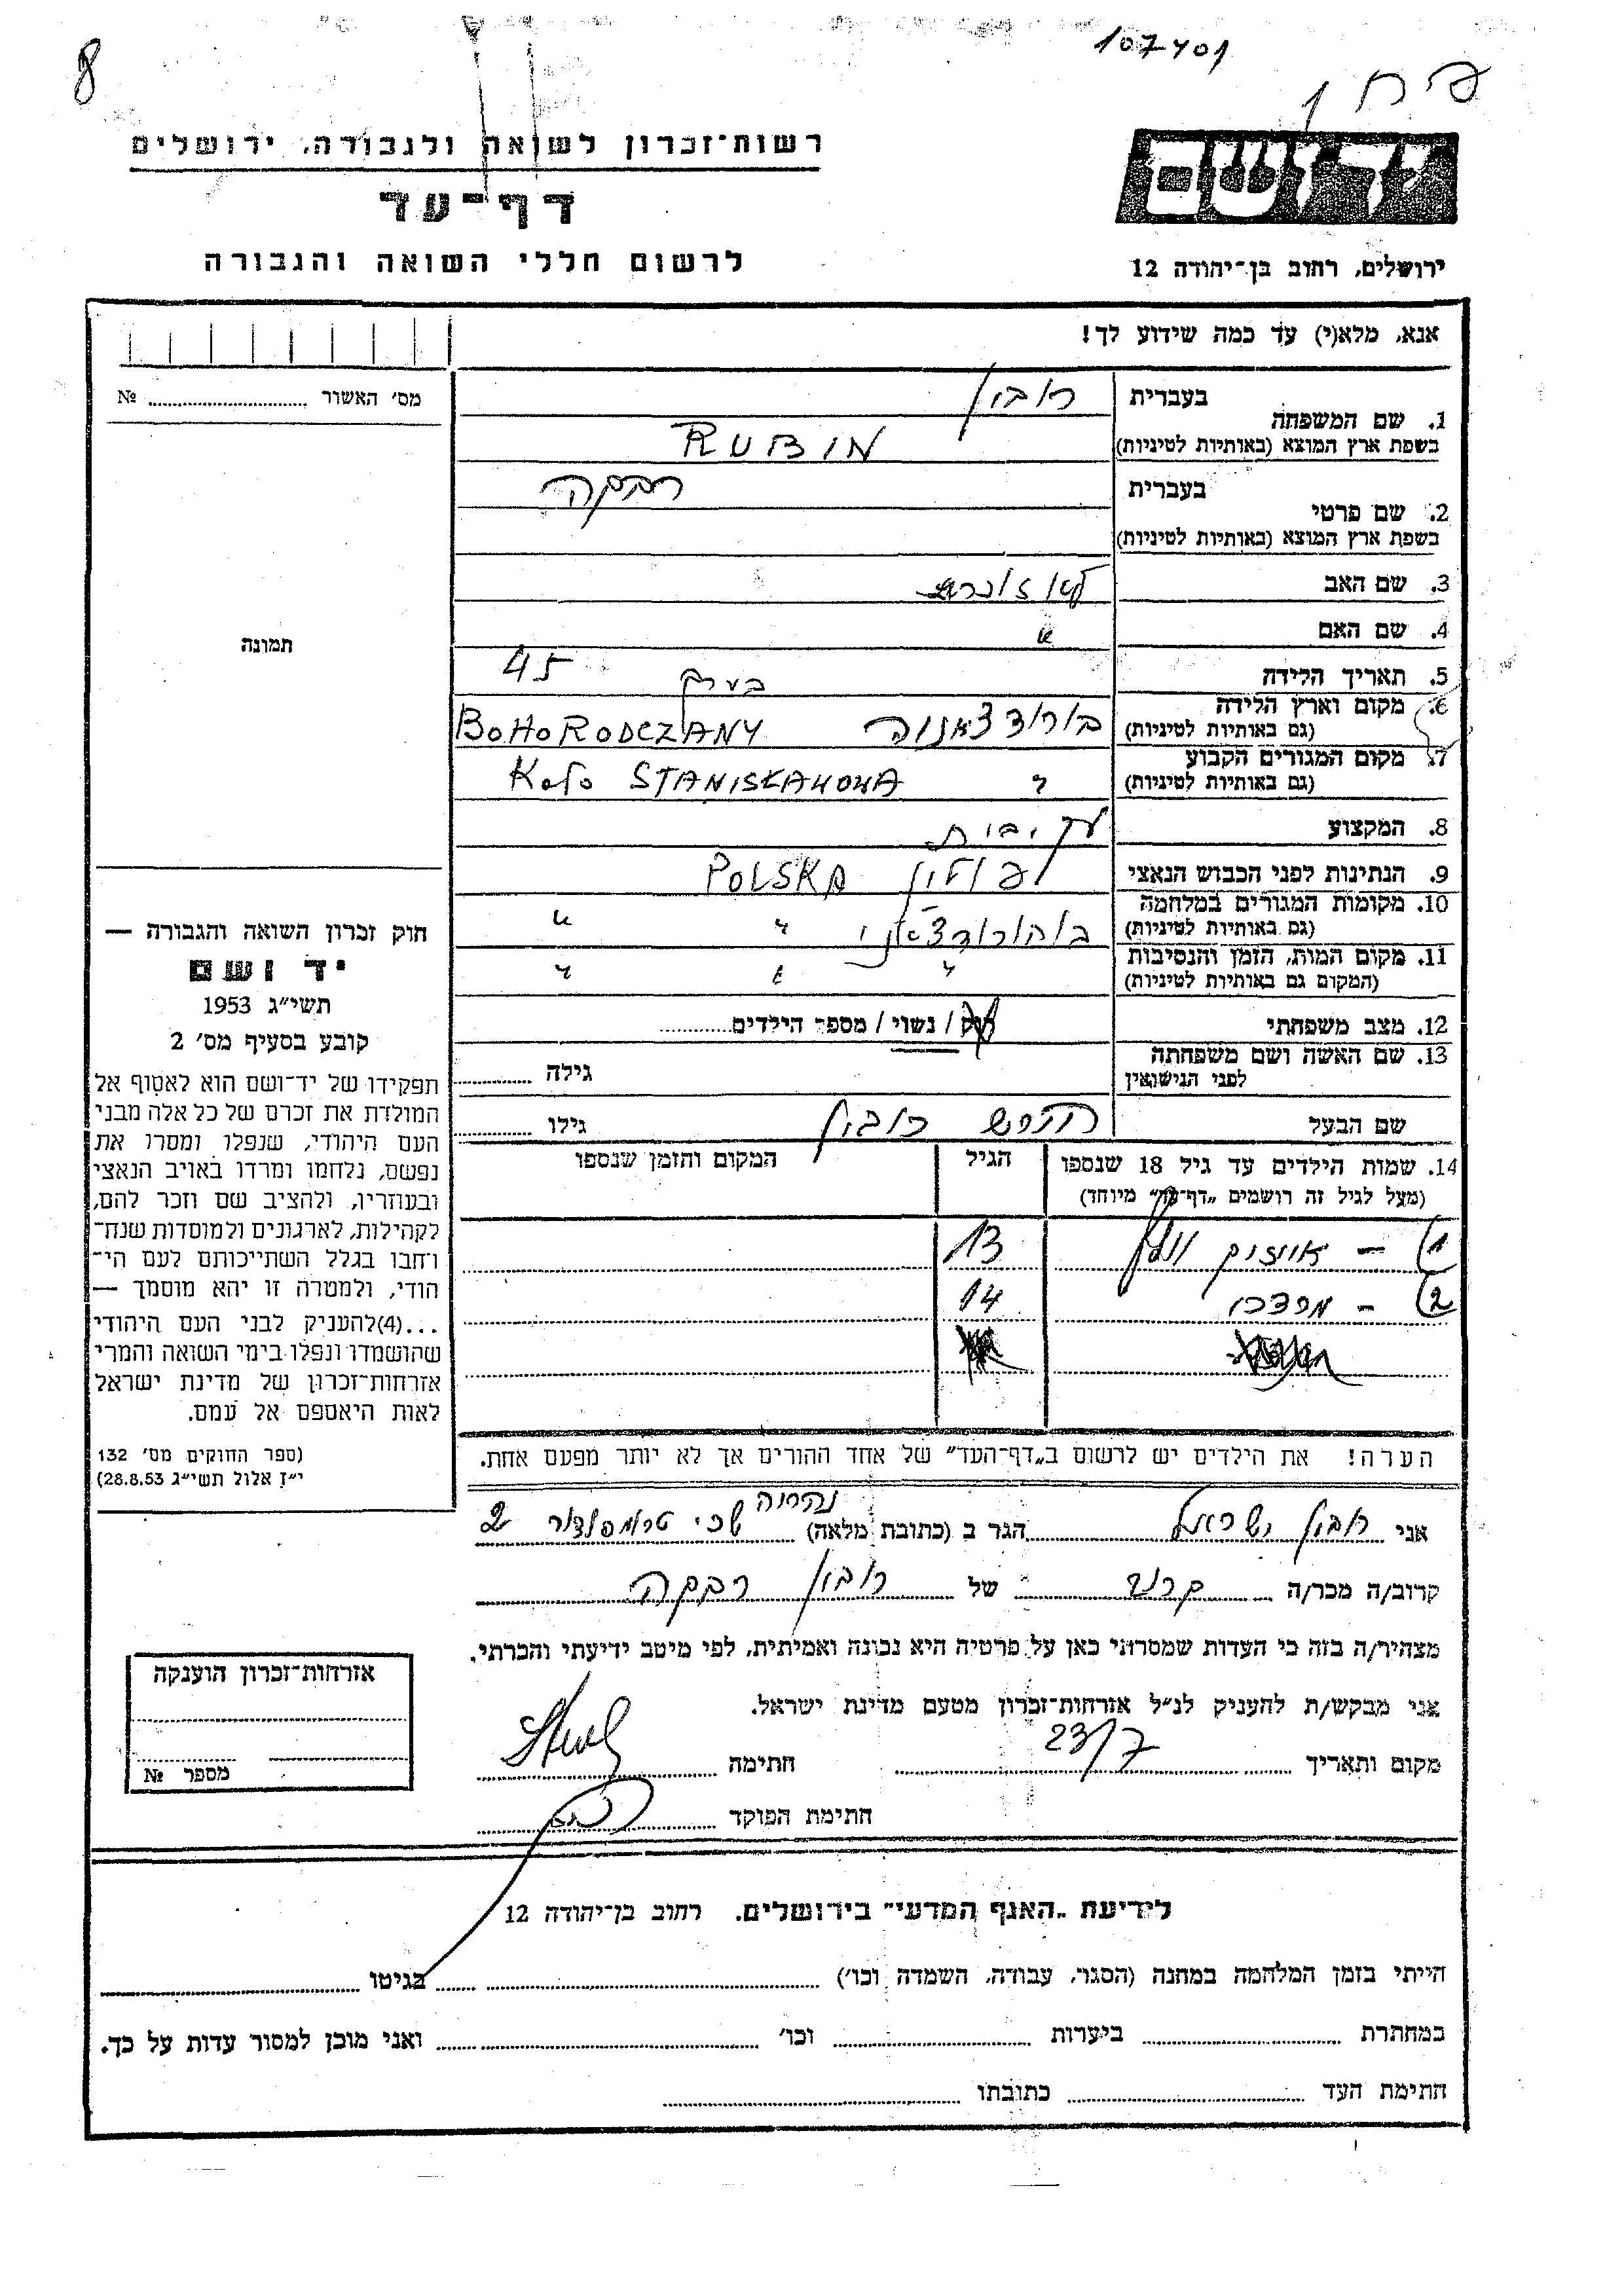 8
107401
רשות־זכרון לשואה ולגבורה, ירושלים
דף־עד
לרשום חללי השואה והגבורה
יד ושם
ירושלים, רחוב בן־יהודה 12
אנא, מלא(י) עד כמה שידוע לך!
מס׳ האשור № 
1. שם המשפחה בעברית רובין
בשפת ארץ המוצא (באותיות לטיניות) RUBIN
2. שם פרטי בעברית רבקה
בשפת ארץ המוצא (באותיות לטיניות)
3. שם האב לא זוכר
4. שם האם "
5. תאריך הלידה בערך 45
6. מקום וארץ הלידה
(גם באותיות לטיניות) BOHORODCZANY
7. מקום המגורים הקבוע
(גם באותיות לטיניות) " Koło STANISŁAWOWA
8. המקצוע עק. בית
9. הנתינות לפני הכבוש הנאצי פולין POLSKA
10. מקומות המגורים במלחמה
(גם באותיות לטיניות) בוהורודצאני " "
11. מקום המות, הזמן והנסיבות
(המקום גם באותיות לטיניות) " " "
12. מצב משפחתי רוק / נשוי / מספר הילדים
13. שם האשה ושם משפחתה
לפני הנישואין גילה
שם הבעל הירש רובין גילו
14. שמות הילדים עד גיל 18 שנספו הגיל המקום והזמן שנספו
(מעל לגיל זה רושמים „דף־עד" מיוחד)
1) – 13
2) – מרדכי 14
הערה! את הילדים יש לרשום ב„דף־העד" של אחד ההורים אך לא יותר מפעם אחת.
תמונה
חוק זכרון השואה והגבורה —
יד ושם
תשי״ג 1953
קובע בסעיף מס׳ 2
תפקידו של יד־ושם הוא לאסוף אל
המולדת את זכרם של כל אלה מבני
העם היהודי, שנפלו ומסרו את
נפשם, נלחמו ומרדו באויב הנאצי
ובעוזריו, ולהציב שם וזכר להם,
לקהילות, לארגונים ולמוסדות שנח־
רחבו בגלל השתייכותם לעם הי־
הודי, ולמטרה זו יהא מוסמך —
...(4)להעניק לבני העם היהודי
שהושמדו ונפלו בימי השואה והמרי
אזרחות־זכרון של מדינת ישראל
לאות היאספם אל עמם.
(ספר החוקים מס׳ 132
י״ז אלול תשי״ג 28.8.53)
נהריה
אני רובין ישראל הגר ב (כתובת מלאה) שכ׳ טרומפלדור 2
קרוב/ה מכר/ה קרוב של רובין רבקה
מצהיר/ה בזה כי העדות שמסרתי כאן על פרטיה היא נכונה ואמיתית, לפי מיטב ידיעתי והכרתי.
אני מבקש/ת להעניק לנ״ל אזרחות־זכרון מטעם מדינת ישראל.
מקום ותאריך 23/7 חתימה
חתימת הפוקד
אזרחות־זכרון הוענקה
מספר №
לידיעת „האגף המדעי" בירושלים. רחוב בן־יהודה 12
הייתי בזמן המלחמה במחנה (הסגר, עבודה, השמדה וכו׳) בגיטו
במחתרת ביערות וכו׳ ואני מוכן למסור עדות על כך.
חתימת העד כתובתו